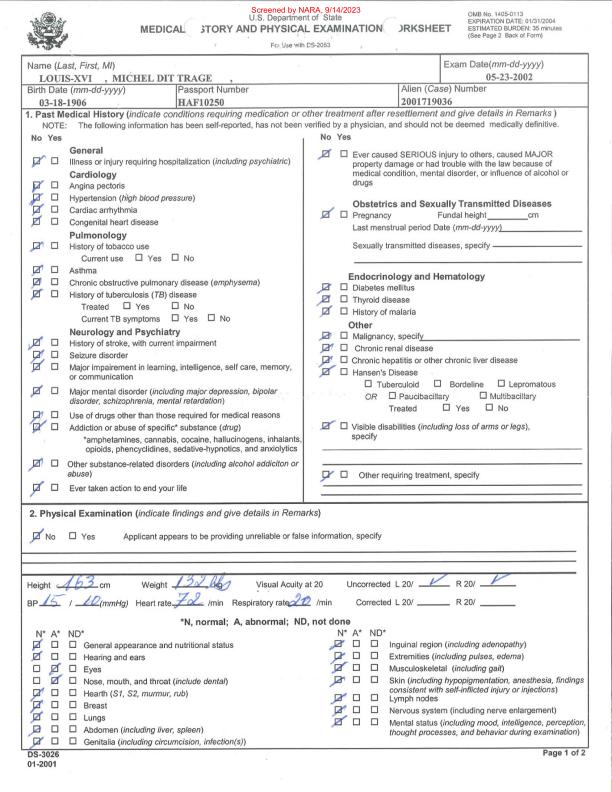 Screened by NARA, 9/14/2023
U.S. Department of State
MEDICAL STORY AND PHYSICAL EXAMINATION RKSHEET
For Use with DS-2053
OMB No. 1405-0113
EXPIRATION DATE: 01/31/2004
ESTIMATED BURDEN: 35 minutes
(See Page 2 Back of Form)
Name (Last, First, MI)
LOUIS-XVI , MICHEL DIT TRAGE ,
Exam Date(mm-dd-yyyy)
05-23-2002
Birth Date (mm-dd-yyyy) Passport Number Alien (Case) Number
03-18-1906 HAF10250 2001719036
1. Past Medical History (indicate conditions requiring medication or other treatment after resettlement and give details in Remarks)
NOTE: The following information has been self-reported, has not been verified by a physician, and should not be deemed medically definitive.
No Yes
General
Illness or injury requiring hospitalization (including psychiatric)
Cardiology
Angina pectoris
Hypertension (high blood pressure)
Cardiac arrhythmia
Congenital heart disease
Pulmonology
History of tobacco use
Current use Yes No
Asthma
Chronic obstructive pulmonary disease (emphysema)
History of tuberculosis (TB) disease
Treated Yes No
Current TB symptoms Yes No
Neurology and Psychiatry
History of stroke, with current impairment
Seizure disorder
Major impairment in learning, intelligence, self care, memory,
or communication
Major mental disorder (including major depression, bipolar
disorder, schizophrenia, mental retardation)
Use of drugs other than those required for medical reasons
Addiction or abuse of specific* substance (drug)
*amphetamines, cannabis, cocaine, hallucinogens, inhalants,
opioids, phencyclidines, sedative-hypnotics, and anxiolytics
Other substance-related disorders (including alcohol addiciton or
abuse)
Ever taken action to end your life
No Yes
Ever caused SERIOUS injury to others, caused MAJOR
property damage or had trouble with the law because of
medical condition, mental disorder, or influence of alcohol or
drugs
Obstetrics and Sexually Transmitted Diseases
Pregnancy Fundal height cm
Last menstrual period Date (mm-dd-yyyy)
Sexually transmitted diseases, specify
Endocrinology and Hematology
Diabetes mellitus
Thyroid disease
History of malaria
Other
Malignancy, specify
Chronic renal disease
Chronic hepatitis or other chronic liver disease
Hansen's Disease
Tuberculoid Bordeline Lepromatous
OR Paucibacillary Multibacillary
Treated Yes No
Visible disabilities (including loss of arms or legs),
specify
Other requiring treatment, specify
2. Physical Examination (indicate findings and give details in Remarks)
No Yes Applicant appears to be providing unreliable or false information, specify
Height 163 cm Weight 132 lbs Visual Acuity at 20 Uncorrected L 20/ R 20/
BP 15 / 10 (mmHg) Heart rate 72 /min Respiratory rate 20 /min Corrected L 20/ R 20/
*N, normal; A, abnormal; ND, not done
N* A* ND*
General appearance and nutritional status
Hearing and ears
Eyes
Nose, mouth, and throat (include dental)
Hearth (S1, S2, murmur, rub)
Breast
Lungs
Abdomen (including liver, spleen)
Genitalia (including circumcision, infection(s))
N* A* ND*
Inguinal region (including adenopathy)
Extremities (including pulses, edema)
Musculoskeletal (including gait)
Skin (including hypopigmentation, anesthesia, findings
consistent with self-inflicted injury or injections)
Lymph nodes
Nervous system (including nerve enlargement)
Mental status (including mood, intelligence, perception,
thought processes, and behavior during examination)
DS-3026
01-2001
Page 1 of 2